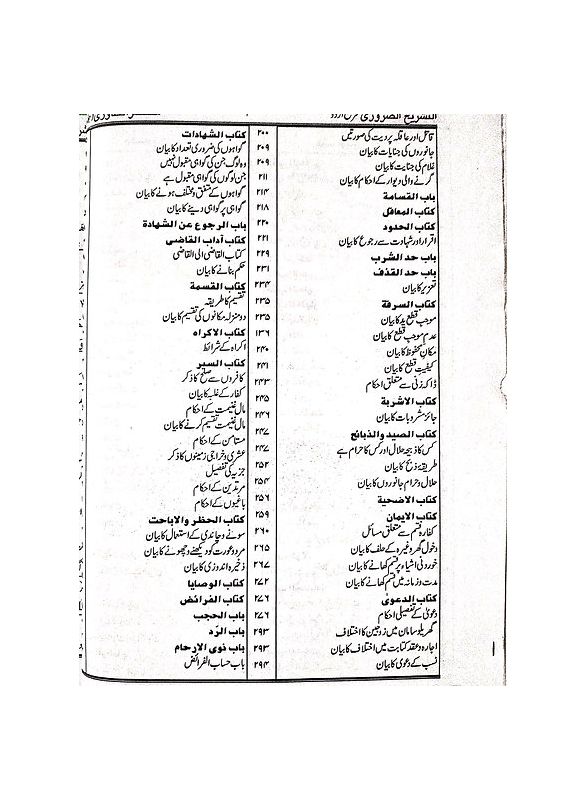 التسریح الضروری
قاتل اور عاقلہ پر دیت کی صورتیں
جانوروں کی جنایات کا بیان
غلام کی جنایت کا بیان
گرنے والی دیوار کے احکام کا بیان
باب القسامة
کتاب المعاقل
کتاب الحدود
اقرار اور شہادت سے رجوع کا بیان
باب حد الشرب
باب حد القذف
تعزیر کا بیان
کتاب السرقة
موجب قطع ید کا بیان
عدم موجب قطع کا بیان
مکان محفوظ کا بیان
کیفیت قطع کا بیان
ڈاکہ زنی سے متعلق احکام
کتاب الاشربة
جائز مشروبات کا بیان
کتاب الصید والذبائح
کس کا ذبیحہ حلال اور کس کا حرام ہے
طریقۂ ذبح کا بیان
حلال و حرام جانوروں کا بیان
کتاب الاضحیة
کتاب الایمان
کفارۂ قسم سے متعلق مسائل
دخول گھر وغیرہ کے حلف کا بیان
خوردنی اشیاء پر قسم کھانے کا بیان
مدت و زمانہ میں قسم کھانے کا بیان
کتاب الدعویٰ
دعویٰ کے تفصیلی احکام
گھریلو سامان میں زوجین کا اختلاف
اجارہ و عقد کتابت میں اختلاف کا بیان
نسب کے دعویٰ کا بیان
۲۰۰ کتاب الشهادات
۲۰۹ گواہوں کی ضروری تعداد کا بیان
۲۰۹ وہ لوگ جن کی گواہی مقبول نہیں
۲۱۱ جن لوگوں کی گواہی مقبول ہے
۲۱۴ گواہوں کے متفق و مختلف ہونے کا بیان
۲۱۸ گواہی پر گواہی دینے کا بیان
۲۲۰ باب الرجوع عن الشهادة
۲۲۱ کتاب آداب القاضی
۲۲۹ کتاب القاضی الی القاضی
۲۳۱ حکم بنانے کا بیان
۲۳۴ کتاب القسمة
۲۳۵ تقسیم کا طریقہ
۲۳۵ دو منزلہ مکانوں کی تقسیم کا بیان
۱۳۶ کتاب الاکراه
۲۴۰ اکراہ کے شرائط
۲۴۱ کتاب السیر
۲۴۳ کافروں سے صلح کا ذکر
۲۴۵ کفار کے غلبہ کا بیان
۲۴۶ مال غنیمت کے احکام
مال غنیمت تقسیم کرنے کا بیان
۲۴۷ مستامن کے احکام
۲۴۷ عشری و خراجی زمینوں کا ذکر
۲۵۲ جزیہ کی تفصیل
۲۵۴ مرتدین کے احکام
۲۵۶ باغیوں کے احکام
۲۵۹ کتاب الحظر والاباحت
۲۶۰ سونے و چاندی کے استعمال کا بیان
۲۶۵ مرد و عورت کو دیکھنے و چھونے کا بیان
۲۶۷ ذخیرہ اندوزی کا بیان
۲۷۲ کتاب الوصایا
۲۷۶ کتاب الفرائض
۲۷۶ باب الحجب
۲۹۳ باب الرّد
۲۹۳ باب ذوی الارحام
۲۹۴ باب حساب الفرائض